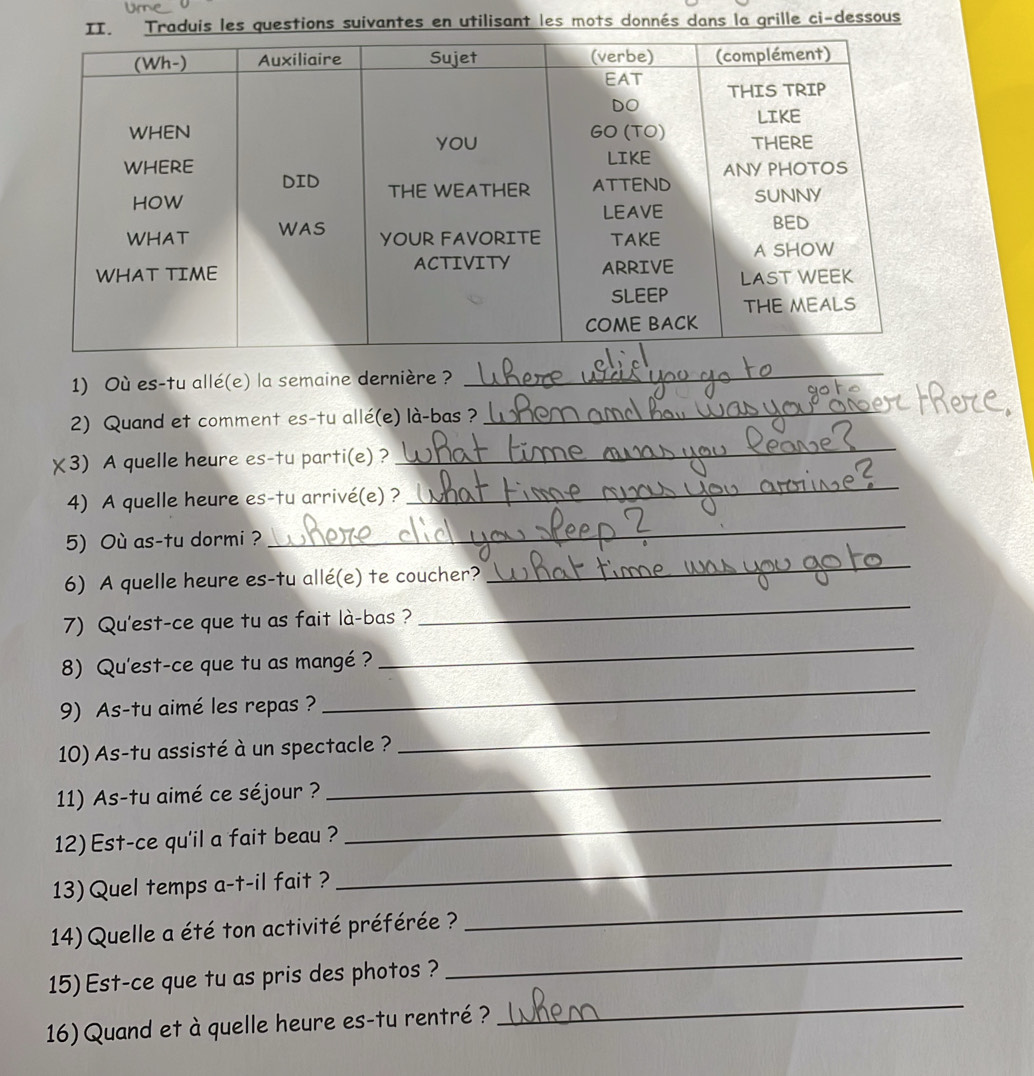 ume
II. Traduis les questions suivantes en utilisant les mots donnés dans la grille ci-dessous
(Wh-) Auxiliaire Sujet (verbe) (complément)
WHEN
WHERE
HOW
WHAT
WHAT TIME
DID
WAS
YOU
THE WEATHER
YOUR FAVORITE
ACTIVITY
EAT
DO
GO (TO)
LIKE
ATTEND
LEAVE
TAKE
ARRIVE
SLEEP
COME BACK
THIS TRIP
LIKE
THERE
ANY PHOTOS
SUNNY
BED
A SHOW
LAST WEEK
THE MEALS
1) Où es-tu allé(e) la semaine dernière ? Where was did you go to
2) Quand et comment es-tu allé(e) là-bas ? When and how was you go to over there.
x 3) A quelle heure es-tu parti(e) ? What time was you leave?
4) A quelle heure es-tu arrivé(e) ? What time was you arrive?
5) Où as-tu dormi ? Where did you sleep?
6) A quelle heure es-tu allé(e) te coucher? What time was you go to
7) Qu'est-ce que tu as fait là-bas ?
8) Qu'est-ce que tu as mangé ?
9) As-tu aimé les repas ?
10) As-tu assisté à un spectacle ?
11) As-tu aimé ce séjour ?
12) Est-ce qu'il a fait beau ?
13) Quel temps a-t-il fait ?
14) Quelle a été ton activité préférée ?
15) Est-ce que tu as pris des photos ?
16) Quand et à quelle heure es-tu rentré ? When